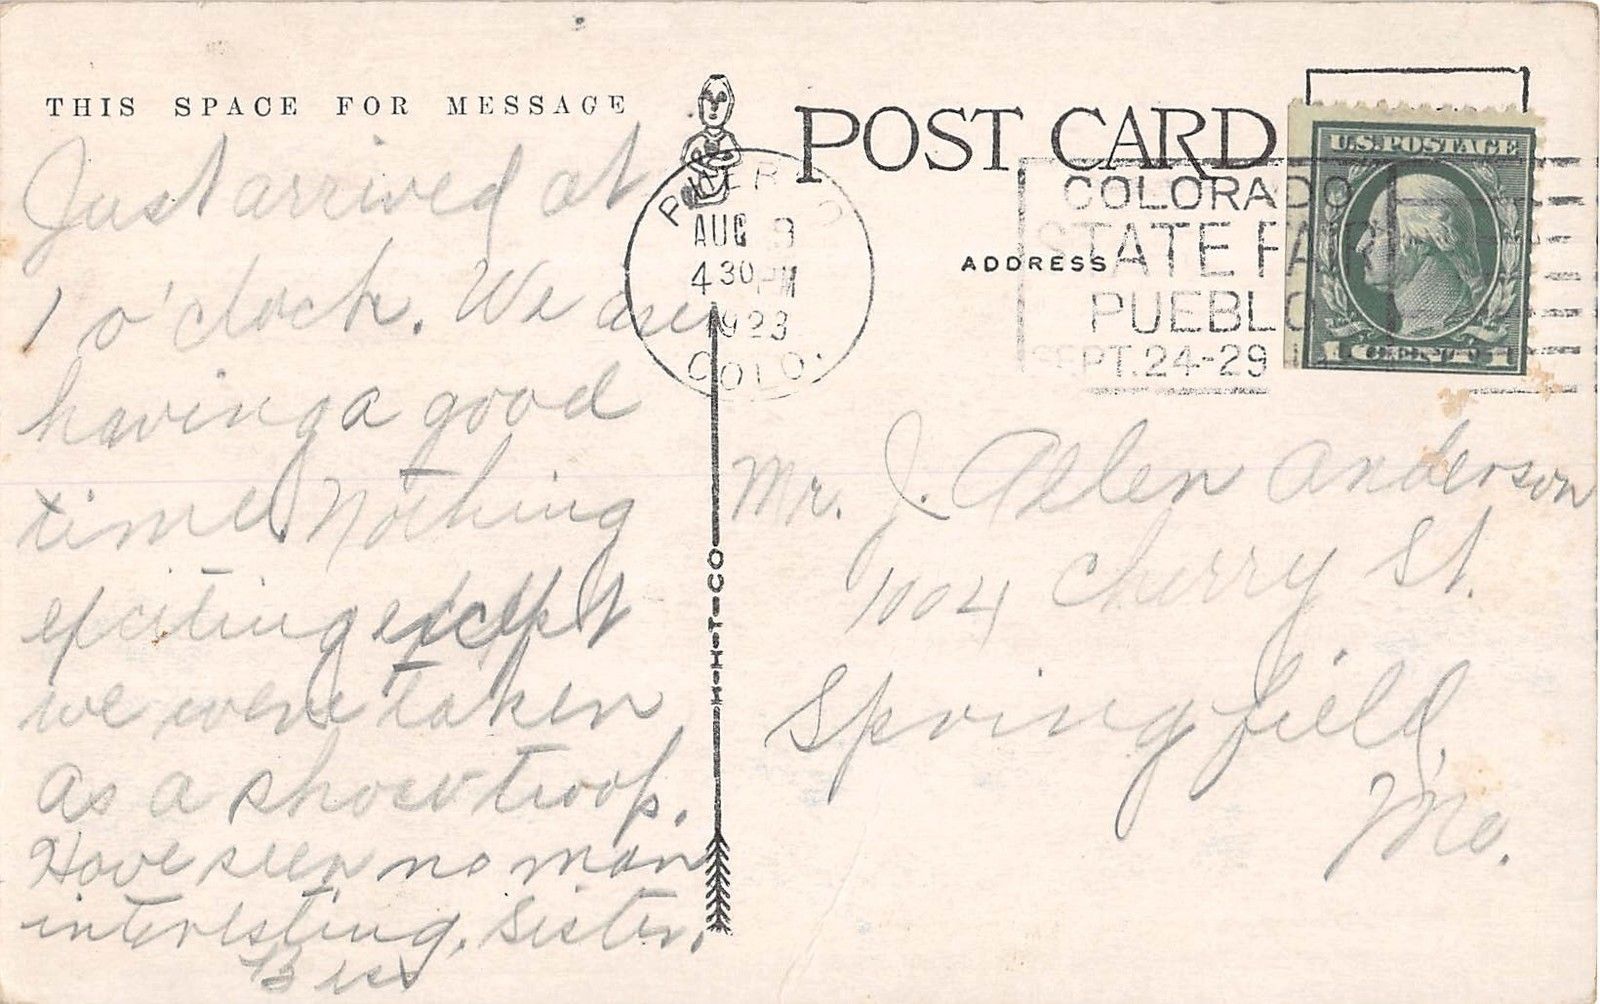 THIS SPACE FOR MESSAGE
Just arrived at
1 o'clock. We are
having a good
time. Nothing
exciting except
we were taken
as a show troop.
Have seen no man
interesting. Sister,
Bess
H-H-T-CO
POST CARD
ADDRESS
PUEBLO
AUG 9
4 30 PM
1923
COLO.
COLORADO
STATE FA
PUEBLO
SEPT. 24-29
U.S. POSTAGE
1 CENT 1
Mr. J. Allen Anderson
1004 Cherry St.
Springfield,
Mo.